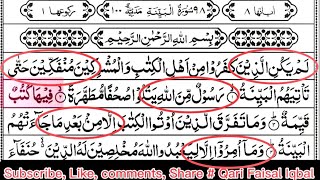 اٰیاتها ۸ ۹۸ سُوْرَةُ الْبَیِّنَةِ مَدَنِیَّةٌ ۱۰۰ رکوعها ۱
بِسْمِ اللّٰهِ الرَّحْمٰنِ الرَّحِیْمِ
لَمْ یَكُنِ الَّذِیْنَ كَفَرُوْا مِنْ اَهْلِ الْكِتٰبِ وَ الْمُشْرِكِیْنَ مُنْفَكِّیْنَ حَتّٰی
تَاْتِیَهُمُ الْبَیِّنَةُ ۱ رَسُوْلٌ مِّنَ اللّٰهِ یَتْلُوْا صُحُفًا مُّطَهَّرَةً ۲ فِیْهَا كُتُبٌ
قَیِّمَةٌ ۳ وَ مَا تَفَرَّقَ الَّذِیْنَ اُوْتُوا الْكِتٰبَ اِلَّا مِنْۢ بَعْدِ مَا جَآءَتْهُمُ
الْبَیِّنَةُ ۴ وَ مَاۤ اُمِرُوْۤا اِلَّا لِیَعْبُدُوا اللّٰهَ مُخْلِصِیْنَ لَهُ الدِّیْنَ حُنَفَآءَ
Subscribe, Like, comments, Share # Qari Faisal Iqbal